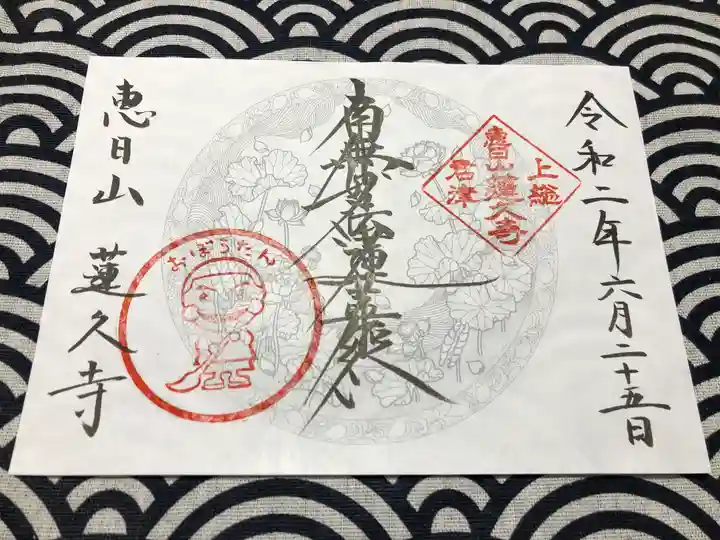 令和二年六月二十五日
上総
恵日山蓮久寺
君津
南無妙法蓮華経
おぼうたん
恵日山 蓮久寺